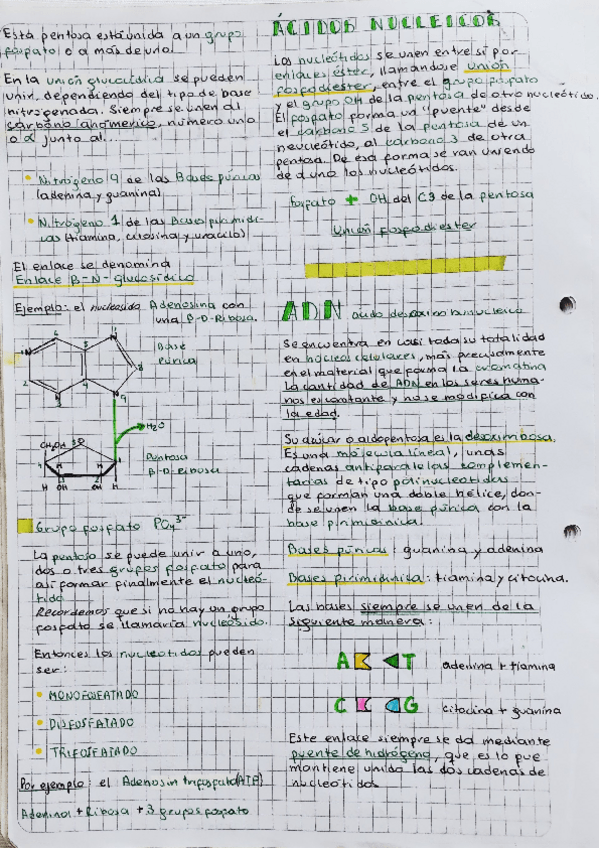 Esta pentosa está unida a un grupo
fosfato o a más de uno.
En la unión glucosídica se pueden
unir, dependiendo del tipo de base
nitrogenada. Siempre se unen al
carbono anomérico, número uno
o α junto al...
• Nitrógeno 9 de las Bases púricas
(adenina y guanina)
• Nitrógeno 1 de las Bases pirimidi-
cas (tiamina, citosina y uracilo)
El enlace se denomina
Enlace β-N-glucosídico
Ejemplo: el nucleosido Adenosina con
una β-D-Ribosa.
Base
púrica
N
9
H2O
CH2OH
Pentosa
β-D-Ribosa
H
OH
OH
H
Grupo fosfato PO4 3-
La pentosa se puede unir a uno,
dos o tres grupos fosfato para
así formar finalmente el nucleó-
tido
Recordemos que si no hay un grupo
fosfato se llamaría nucleósido.
Entonces los nucleotidos pueden
ser:
• MONOFOSFATADO
• DIFOSFATADO
• TRIFOSFATADO
Por ejemplo: el Adenosin trifosfato (ATP)
Adenina + Ribosa + 3 grupos fosfato
ÁCIDOS NUCLEICOS
Los nucleótidos se unen entre sí por
enlaces éster, llamándose unión
fosfodiester, entre el grupo fosfato
y el grupo OH de la pentosa de otro nucleótido.
El fosfato forma un "puente" desde
el carbono 5 de la pentosa de un
neucleótido, al carbono 3 de otra
pentosa. De esa forma se van uniendo
de a uno los nucleótidos.
fosfato + OH del C3 de la pentosa
Unión fosfodiester
ADN ácido desoxirribonucleico
Se encuentra en casi toda su totalidad
en núcleos celulares, más precisamente
en el material que forma la cromatina
La cantidad de ADN en los seres huma-
nos es constante y no se modifica con
la edad.
Su azúcar o aldopentosa es la desoxirribosa.
Es una molécula lineal, unas
cadenas antiparalelas complemen-
tadas de tipo polinucleotidos
que forman una doble hélice, don-
de se unen la base púrica con la
base pirimidinica.
Bases púricas: guanina y adenina
Bases pirimidinica: tiamina y citocina.
Las bases siempre se unen de la
siguiente manera:
A T adenina + tiamina
C G citocina + guanina
Este enlace siempre se da mediante
puente de hidrógeno, que es lo que
mantiene unida las dos cadenas de
nucleotidos